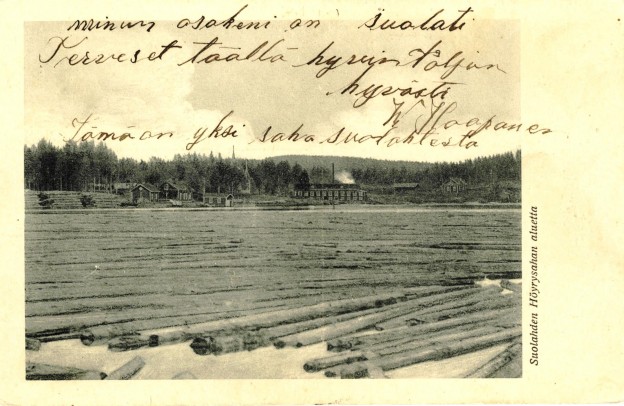 minun osakeni on suolati
Terveset täältä hyvin Toljon
hyvästi
K Haapanen
Tämä on yksi saha suolahtesta
Suolahden Höyrysahan aluetta